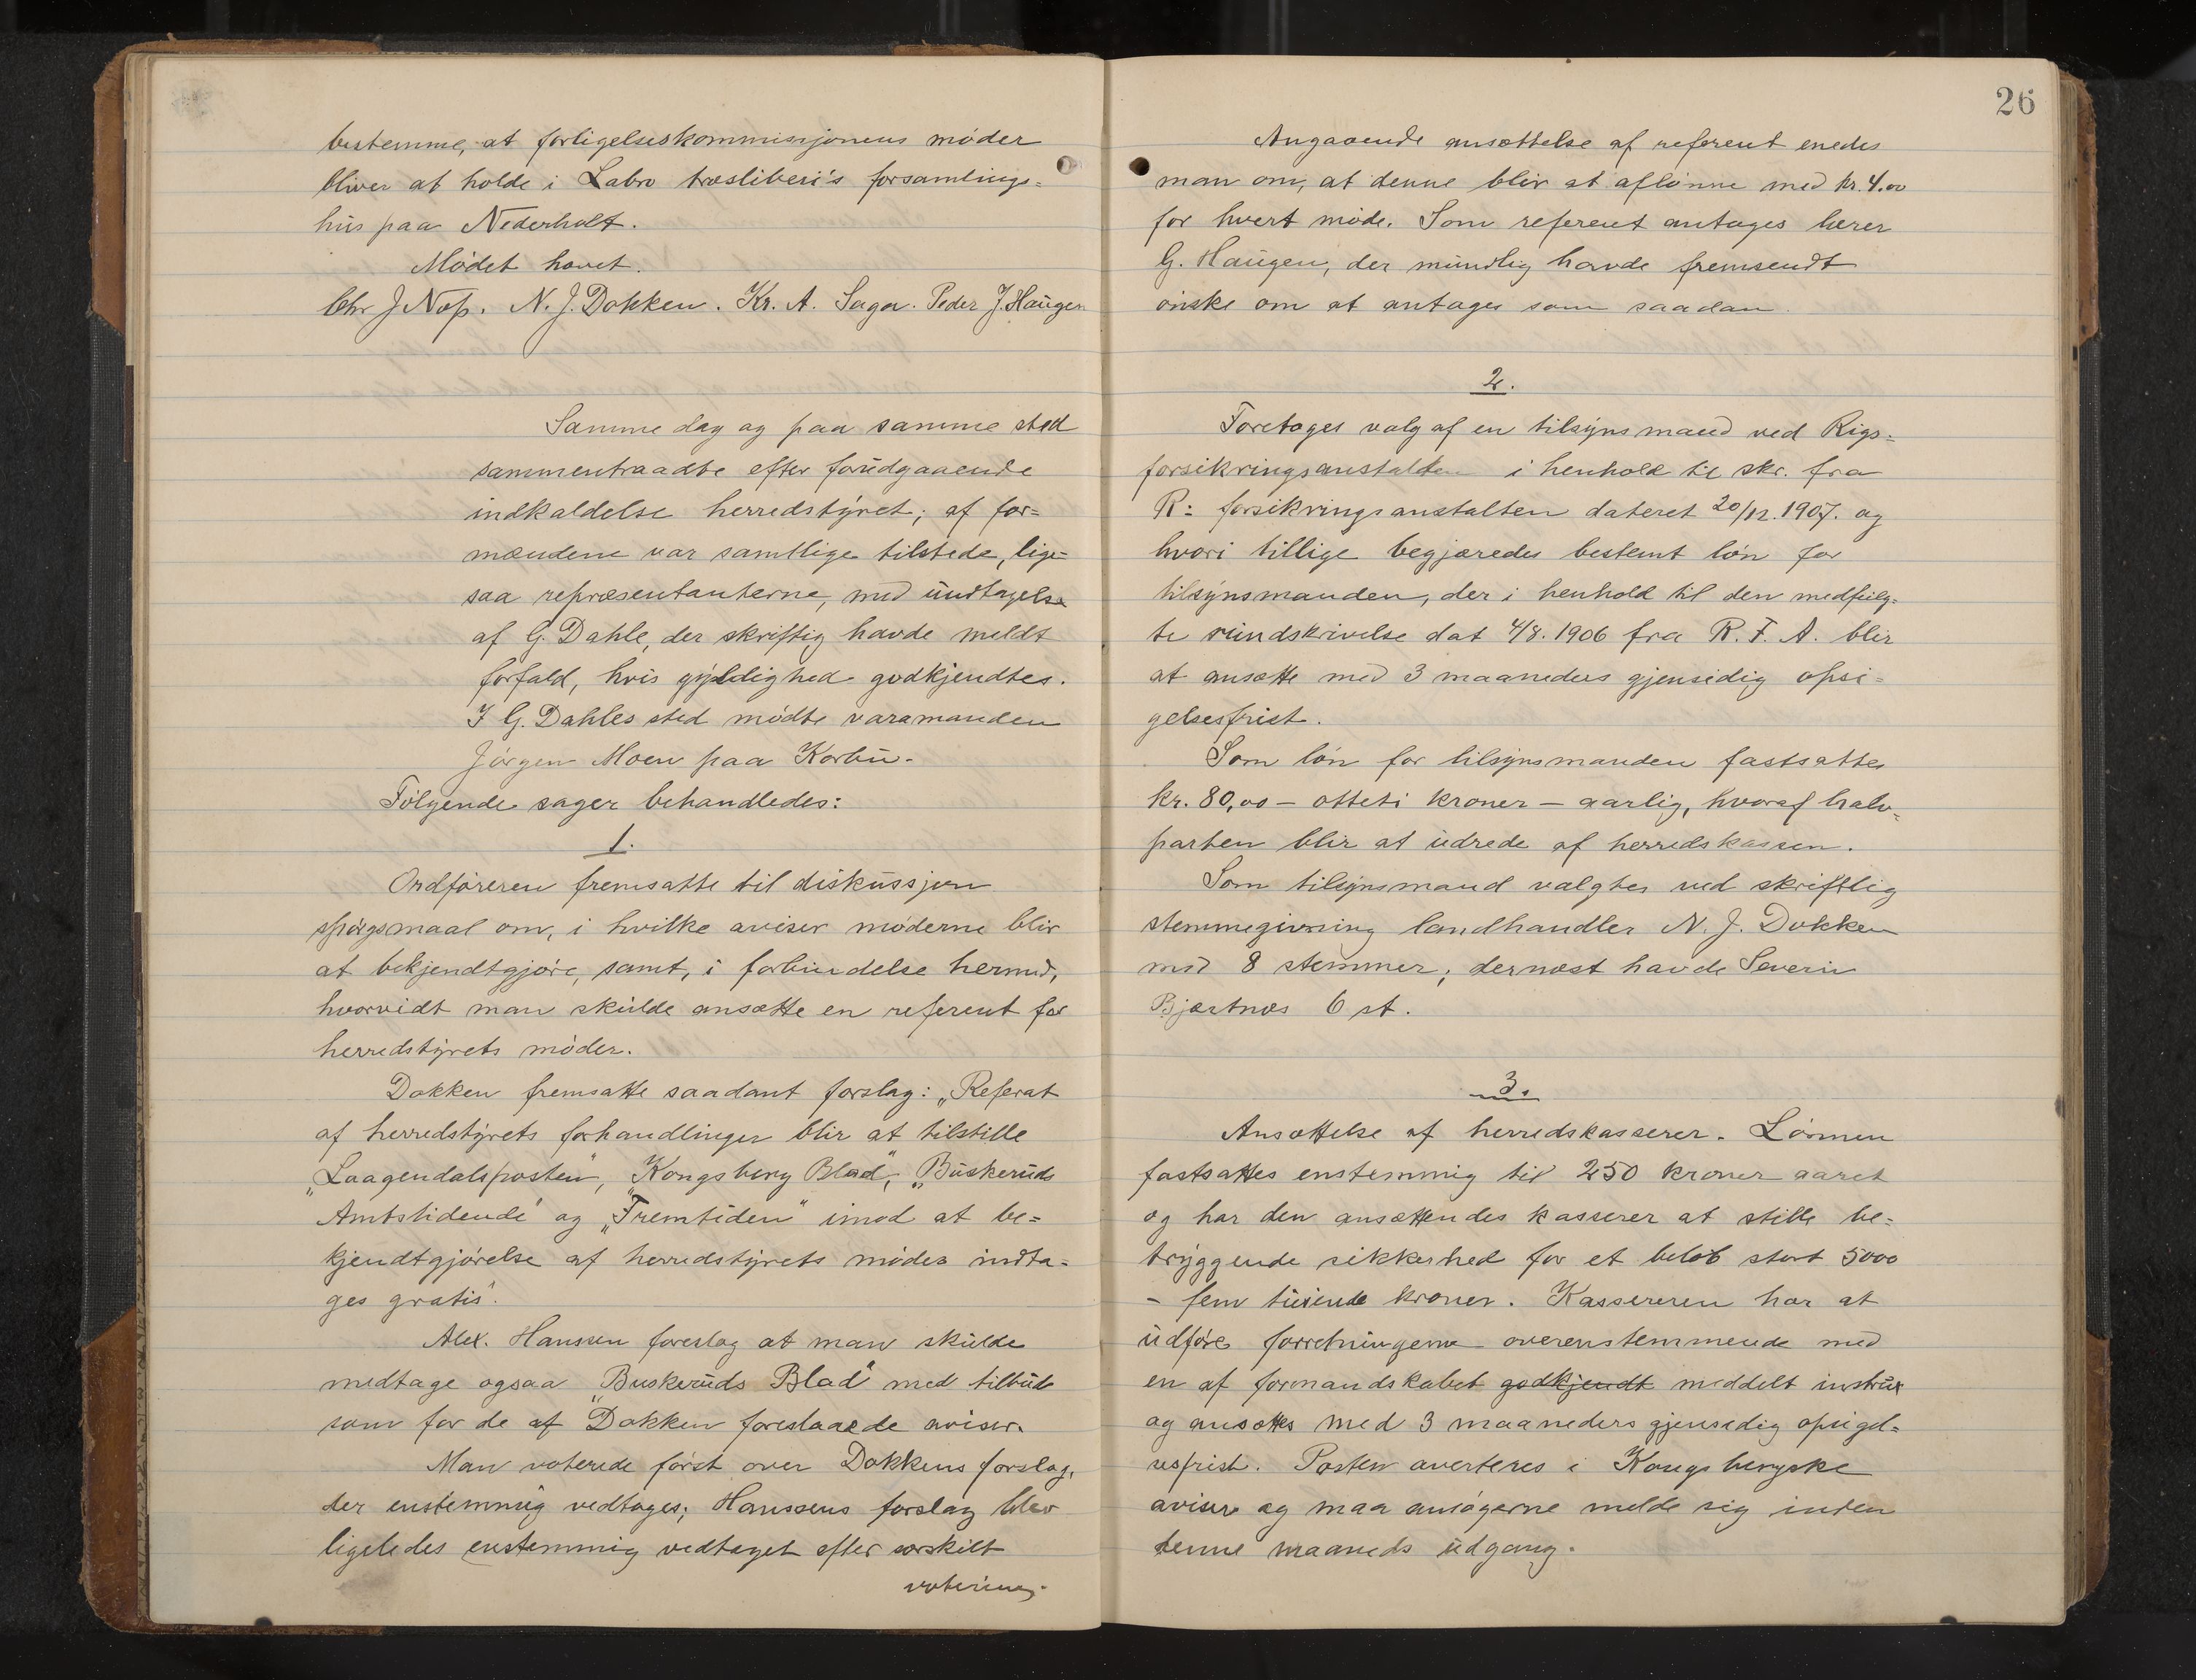 bestemme, at forligelseskommissjonens møder
bliver at holde i Labro træsliberi's forsamlings=
hus paa Nederholt.
Mødet hævet.
Chr J Nop. N. J. Dokken. Kr. A. Saga. Peder J. Haugen
Samme dag og paa samme sted
sammentraadte efter forudgaaende
indkaldelse herredstyret; af for=
mændene var samtlige tilstede, lige=
saa repræsentanterne, med undtagelse
af G. Dahle, der skriftlig havde meldt
forfald, hvis gyldighed godkjendtes.
I G. Dahles sted mødte varamanden
Jørgen Moen paa Korbu.
Følgende sager behandledes:
1.
Ordføreren fremsatte til diskussjon
spørgsmaal om, i hvilke aviser møderne blir
at bekjendtgjøre, samt, i forbindelse hermed,
hvorvidt man skulde ansætte en referent for
herredstyrets møder.
Dokken fremsatte saadant forslag: „Referat
af herredstyrets forhandlinger blir at tilstille
„Laagendalsposten", „Kongsberg Blad", „Buskeruds
Amtstidende" og „Fremtiden" imod at be=
kjendtgjørelse af herredstyrets møder indta=
ges gratis".
Alex. Hanssen foreslog at man skulde
medtage ogsaa „Buskeruds Blad" med tilbud
som for de af Dokken foreslaaede aviser.
Man voterede først over Dokkens forslag,
der enstemmig vedtoges; Hanssens forslag blev
ligeledes enstemmig vedtaget efter særskilt
votering.
26
Angaaende ansættelse af referent enedes
man om, at denne blir at aflønne med kr. 4.00
for hvert møde. Som referent antages lærer
G. Haugen, der mundlig havde fremsendt
ønske om at antages som saadan.
2.
Foretoges valg af en tilsynsmand ved Rigs=
forsikringsanstalten i henhold til skr. fra
R: forsikringsanstalten dateret 20/12. 1907. og
hvori tillige begjæredes bestemt løn for
tilsynsmanden, der i henhold til den medfulg=
te rundskrivelse dat 4/8. 1906 fra R. F. A. blir
at ansætte med 3 maaneders gjensidig opsi=
gelsesfrist.
Som løn for tilsynsmanden fastsattes
kr. 80,00 – otteti kroner – aarlig, hvoraf halv=
parten blir at udrede af herredskassen.
Som tilsynsmand valgtes ved skriftlig
stemmegivning landhandler N. J. Dokken
med 8 stemmer; dernæst havde Severin
Bjærtnæs 6 st.
3.
Ansættelse af herredskasserer. Lønnen
fastsattes enstemmig til 250 kroner aaret
og har den ansættendes kasserer at stille be=
tryggende sikkerhed for et beløb stort 5000
– fem tusinde kroner. Kassereren har at
udføre forretningerne overenstemmende med
en af formandskabet godkjendt meddelt instrux
og ansættes med 3 maaneders gjensidig opsigel=
sesfrist. Posten averteres i Kongsbergske
aviser og maa ansøgerne melde sig inden
denne maaneds udgang.